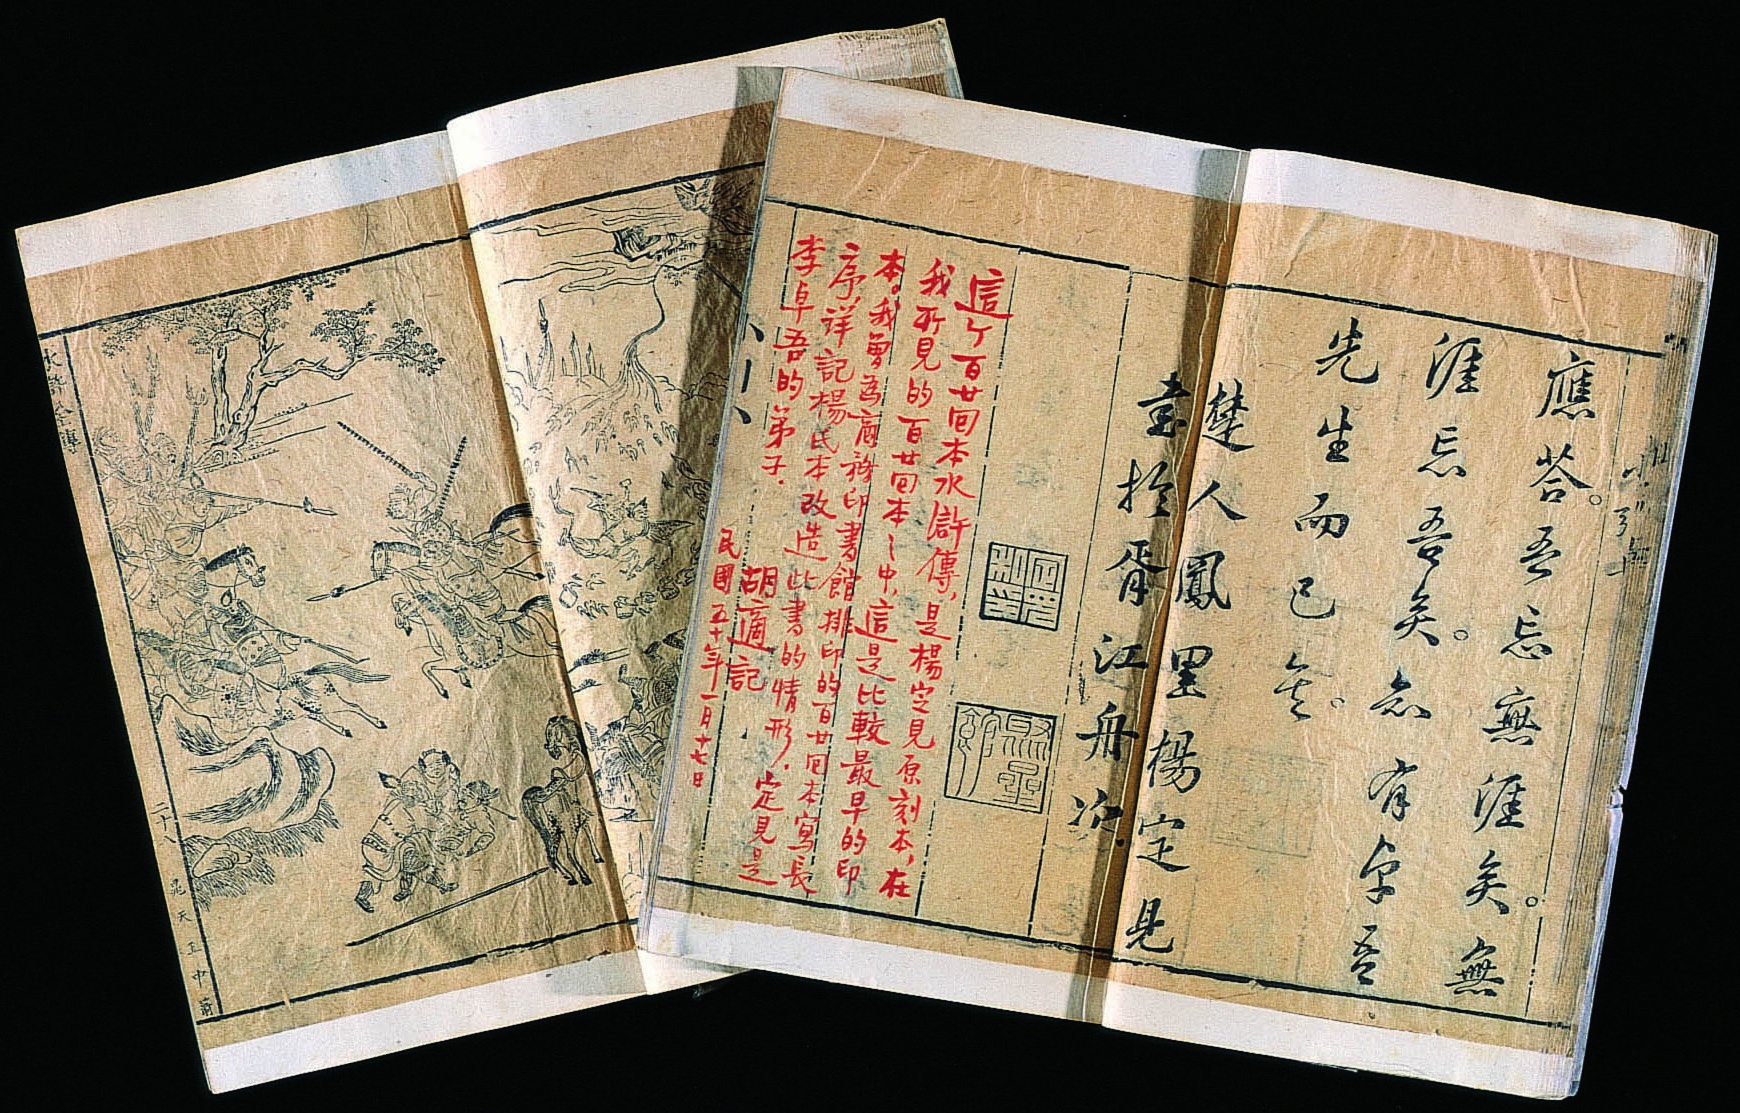 應答。吾忘無涯矣。無
涯忘吾矣。有卓吾
先生而已矣。
楚人鳳里楊定見
書於胥江舟次
這个百廿回本水滸傳,是楊定見原刻本,在
我所見的百廿回本之中,這是比較最早的印
本。我曾為商務印書館排印的百廿回本寫長
序,詳記楊氏本改造此書的情形.定見是
李卓吾的弟子.
胡適記
民國五十年一月十七日
水滸全傳
二十八
晁天王中箭